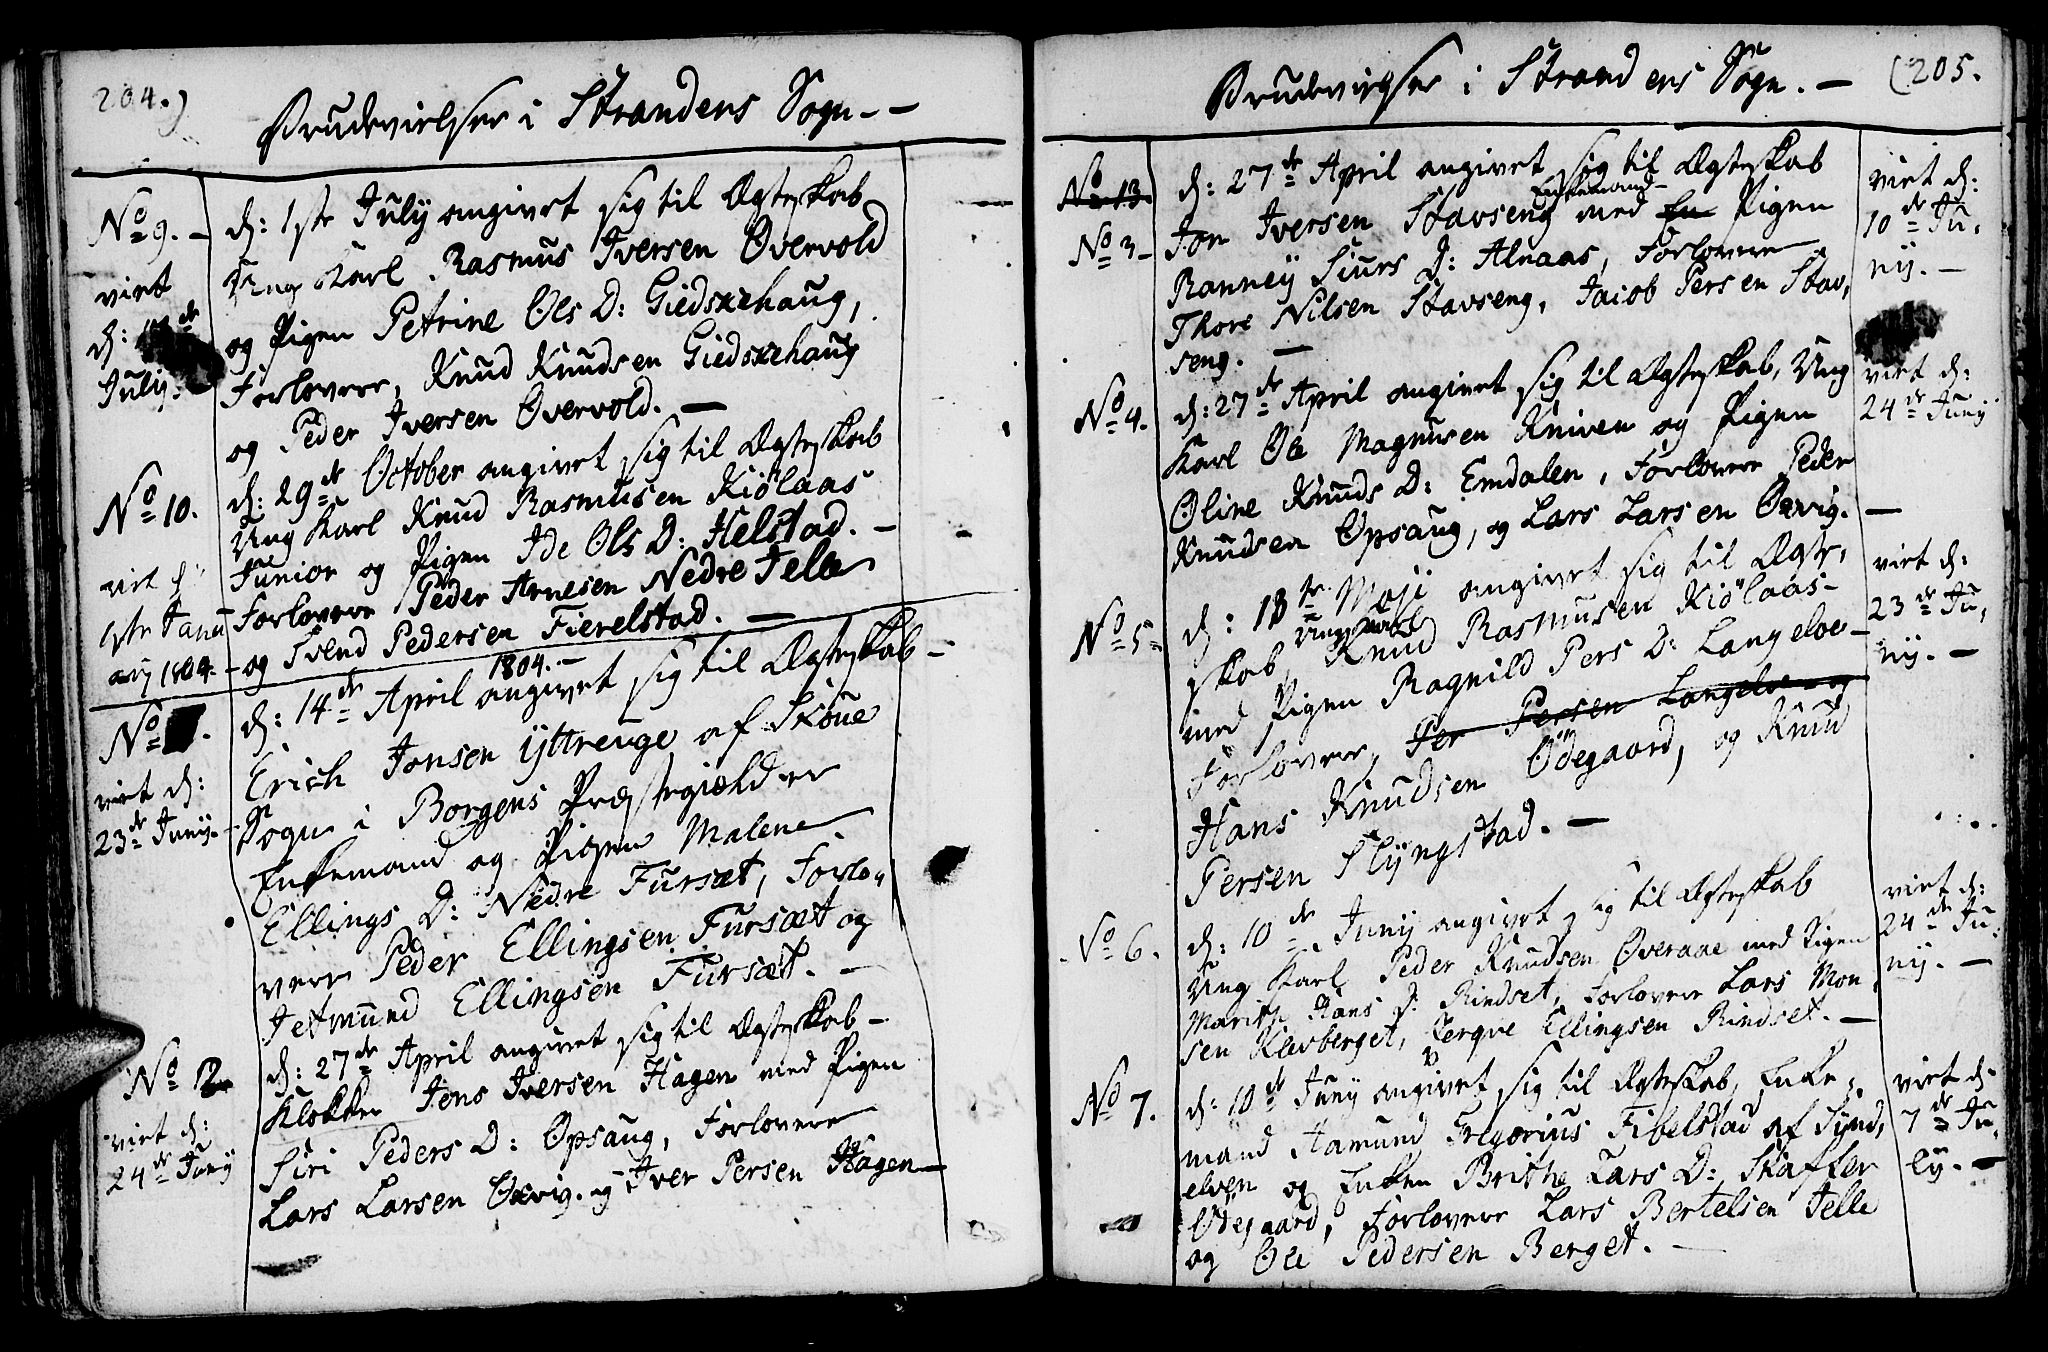 204.)
Brudevielser i Strandens Sogn. -
No 9. -
viet
d:
July.
d: 1ste July angivet sig til Ægteskab
Ung Karl Rasmus Iversen Overvold
og Pigen Petrine Ols D: Giedskehaug,
Forlovere, Knud Knudsen Giedskehaug
og Peder Iversen Overvold. -
No 10.
viet d:
1ste Janu
arij 1804. -
d: 29de October angivet sig til Ægteskab
Ung Karl Knud Rasmusen Kiölaas
Junior og Pigen Ide Ols D: Helstad. -
Forlovere Peder Arnesen Nedre Jelle
og Svend Pedersen Fierelstad. -
1804. -
No .
viet d:
23de Junij. -
d: 14de April angivet sig til Ægteskab -
Erich Jonsen Yttreuge af Skoue
Sogn i Borgens Præstegield er
Enkemand og Pigen Malene
Ellings D: Nedre Fursæt, Forlo-
vere Peder Ellingsen Fursæt og
Jetmund Ellingsen Fursæt. -
No 2
viet d:
24de Junij
d: 27de April angivet sig til Ægteskab -
Klokker Jens Iversen Hagen med Pigen
Siri Peders D: Opsaug, Forlovere
Lars Larsen Oxvig. og Iver Persen Hagen -
(205.
Brudevielser i Strandens Sogn. -
No 13.
No 3 -
d: 27de April angivet sig til Ægteskab
Enkemand -
Jon Iversen Stavseng med En Pigen
Ranney Siurs D: Alnaas, Forlovere
Thore Nilsen Stavseng, Jacob Persen Stav,
seng. -
viet d:
10de Ju,
nij. -
No 4.
d: 27de April angivet sig til Ægteskab, Ung
Karl Ole Magnusen Kniven og Pigen
Oline Knuds D: Emdalen, Forlovere Peder
Knudsen Opsaug, og Lars Larsen Oxvig. -
viet d:
24de Junij
No 5 =
d: 18de Maji angivet sig til Ægte,
Ung Karl
skab, Knud Rasmusen Kiölaas -
med Pigen Ragnild Pers D: Langeloe -
Forlovere, Per Persen Langeloe og
Hans Knudsen Ödegaard, og Knud
Persen Slyngstad. -
viet d:
23de Ju,
nij. -
No 6.
d: 10de Junij angivet sig til Ægteskab
Ung Karl Peder Knudsen Overaae med Pigen
Marithe Hans D. Rindset, Forlovere Lars Mon,
sen Klevberget, Verqve Ellingsen Rindset. -
viet d:
24de Ju,
nij. -
No 7.
d: 10de Junij angivet sig til Ægteskab, Enke,
mand Aamund Gregorius Fibelstad af Sund,
elven og Enken Brithe Lars D: Skafler
Ödegaard, Forlovere Lars Bertelsen Jelle
og Ole Pedersen Berget. -
viet d:
7de Ju,
ly. -